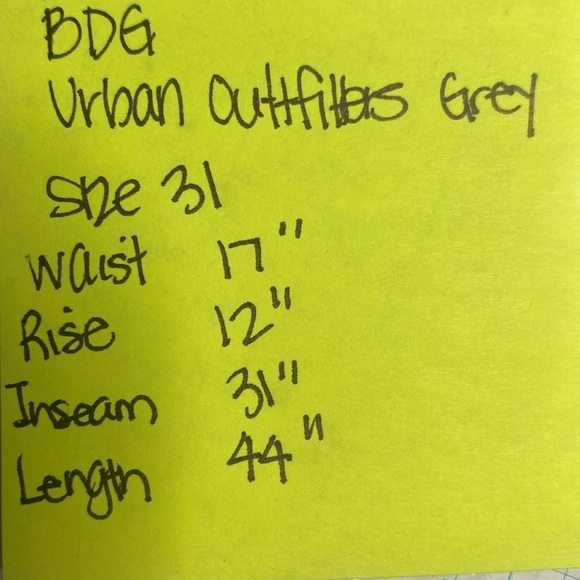 BDG
Urban Outtfitters Grey
Size 31
Waist 17"
Rise 12"
Inseam 31"
Length 44"